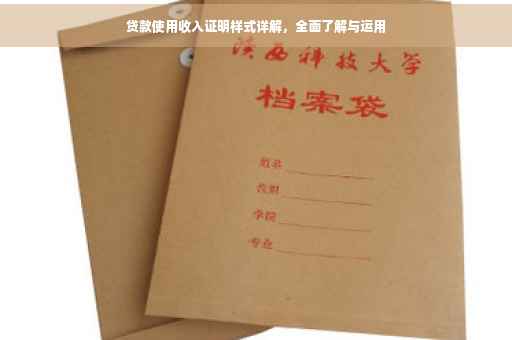 贷款使用收入证明样式详解，全面了解与运用
陕西科技大学
档案袋
学院
专业